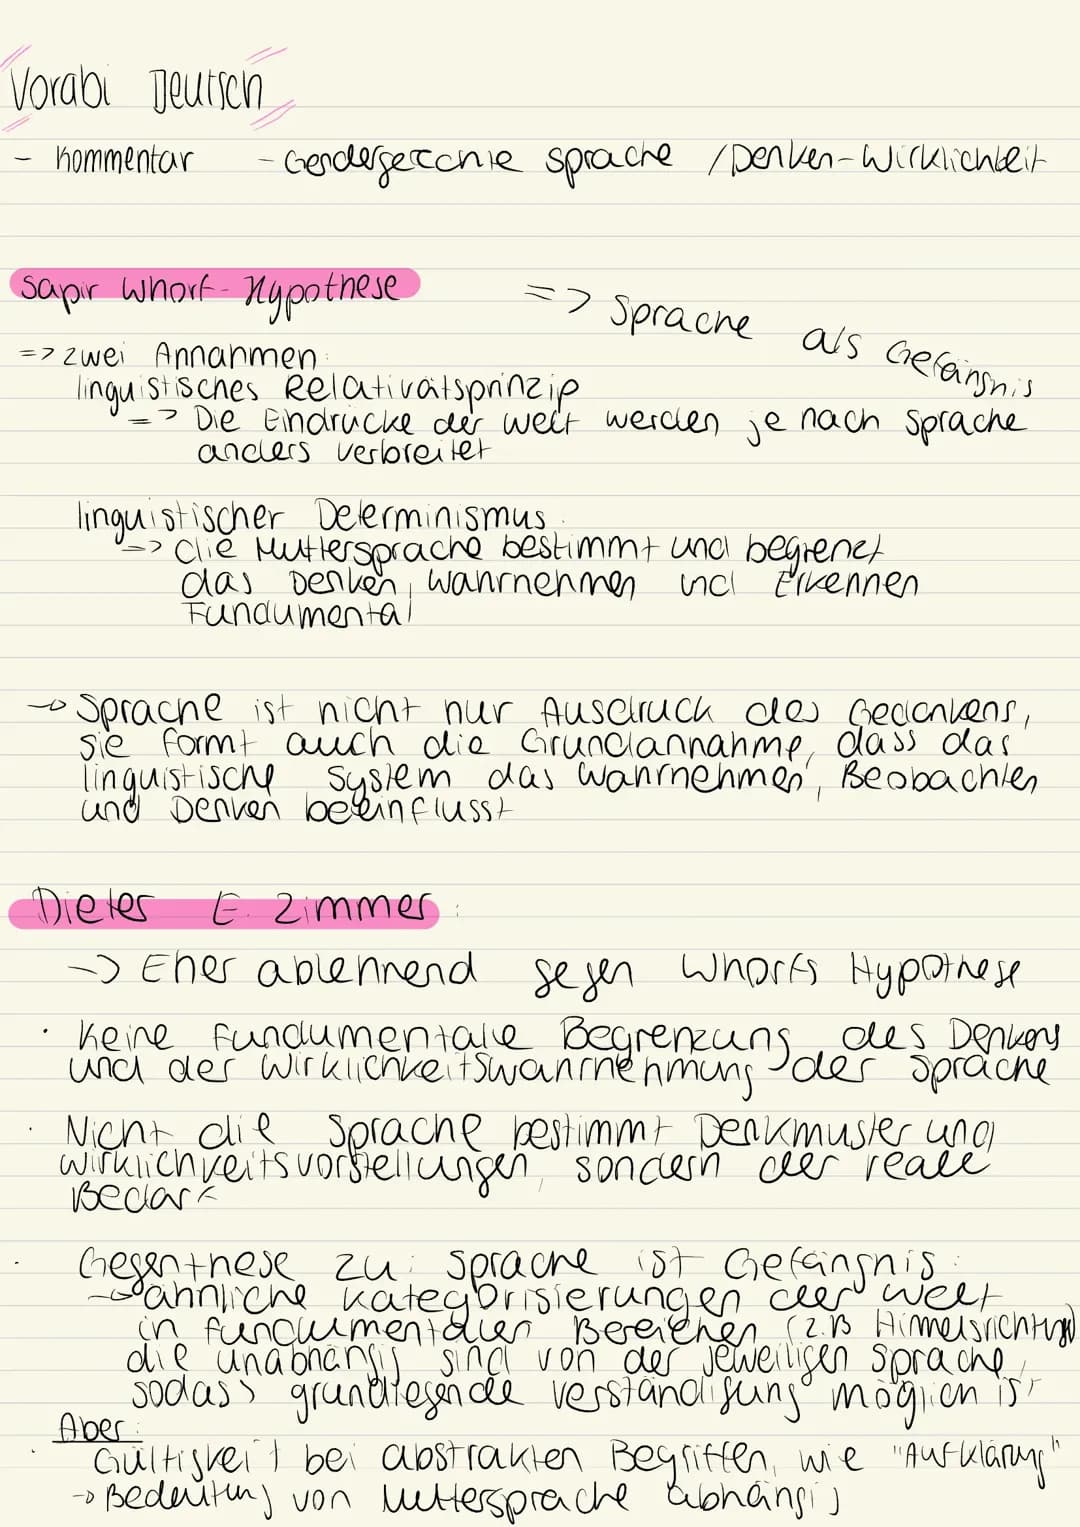 Vorabi Deutsch
- Kommentar - Gendergerechte Sprache / Denken-Wirklichkeit
Sapir Whorf-Hypothese => Sprache als Gefängnis
=> zwei Annahmen:
linguistisches Relativitätsprinzip
=> Die Eindrücke der Welt werden je nach Sprache
anders verbreitet
linguistischer Determinismus.
=> die Muttersprache bestimmt und begrenzt
das Denken, Wahrnehmen und Erkennen
Fundumental
→ Sprache ist nicht nur Ausdruck des Gedankens,
sie formt auch die Grundannahme, dass das
linguistische System das Wahrnehmen, Beobachten
und Denken beeinflusst
Dieter E. Zimmer:
-> Eher ablehnend gegen Whorfs Hypothese
· Keine fundumentale Begrenzung des Denkens
und der Wirklichkeitswahrnehmung der Sprache
· Nicht die Sprache bestimmt Denkmuster und
Wirklichkeitsvorstellungen, sondern der reale
Bedarf
· Gegenthese zu: Sprache ist Gefängnis:
→ ähnliche Kategorisierungen der Welt
in fundumentalen Bereichen (z.B Himmelsrichtung)
die unabhängig sind von der jeweiligen Sprache,
sodass grundlegende Verständigung möglich ist
Aber:
· Gültigkeit bei abstrakten Begriffen, wie "Aufklärung"
→ Bedeutung von Muttersprache abhängig